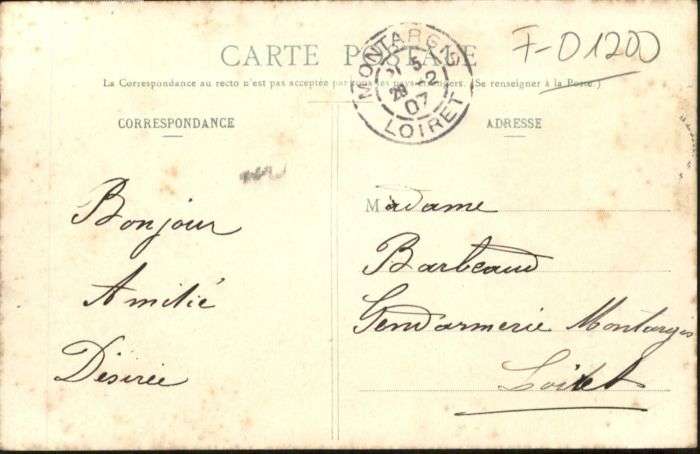 CARTE POSTALE
F-01200
La Correspondance au recto n'est pas acceptée par tous les pays étrangers. (Se renseigner à la Poste.)
MONTARGIS
28 - 2
07
LOIRET
CORRESPONDANCE
Bonjour
Amitié
Désirée
ADRESSE
Madame
Barbeaud
Gendarmerie Montargis
Loiret